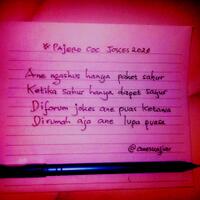 * PAJERO COC JOKES 2020
Ane ngashus hanya paket sahur
Ketika sahur hanya dapet sayur
Diforum jokes ane puas ketawa
Dirumah aja ane lupa puasa